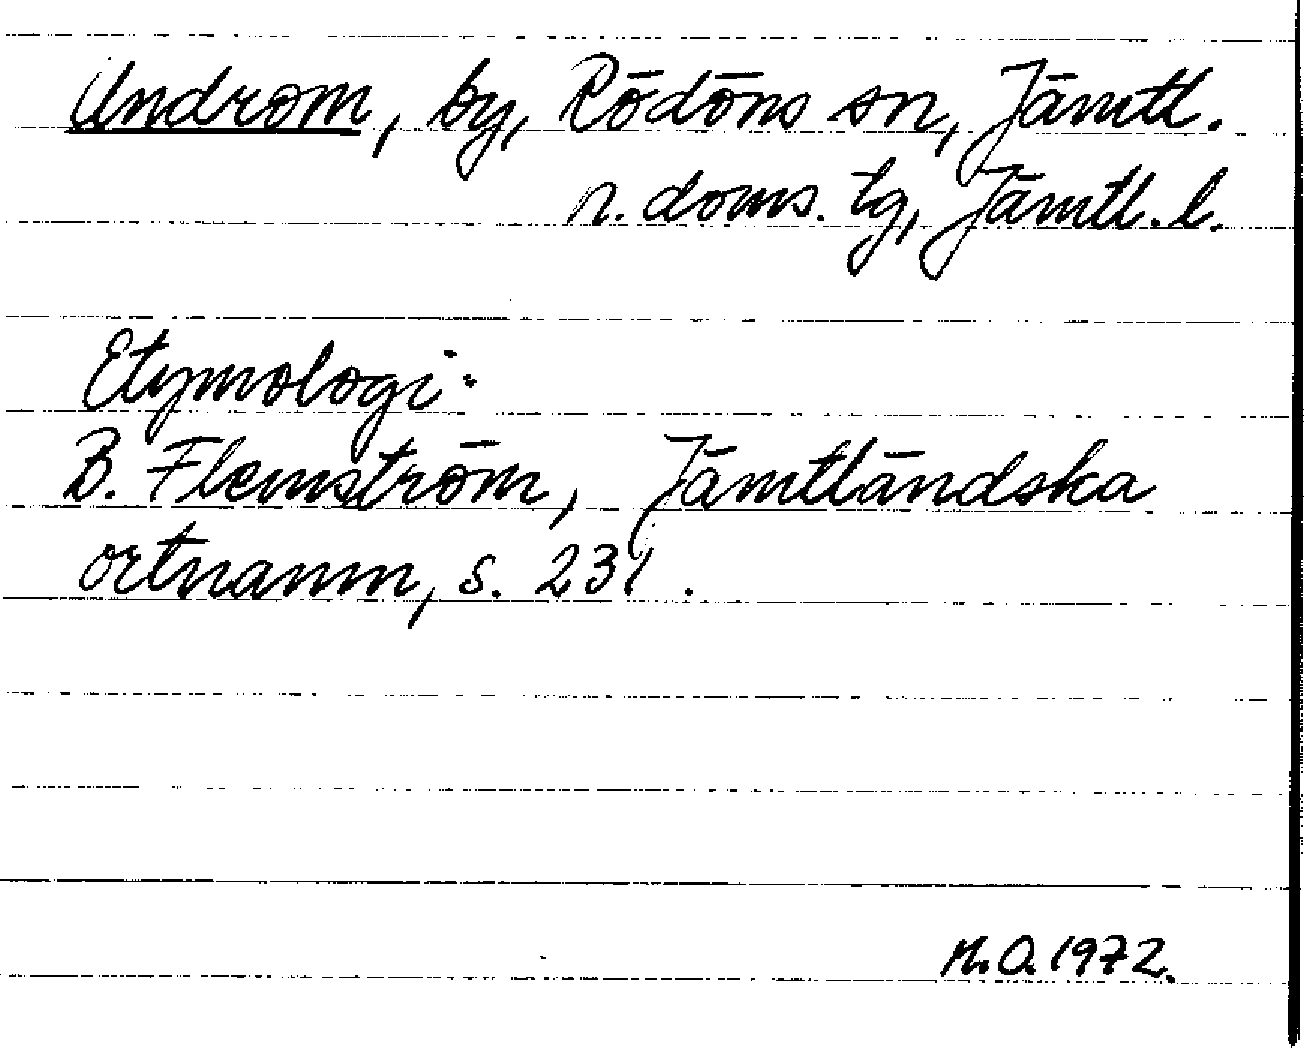 Undrom, by, Rödöns sn, Jämtl.
n. doms. lg, Jämtl. l.
Etymologi:
B. Flemström, Jämtländska
ortnamn, s. 231.
M.O. 1972.